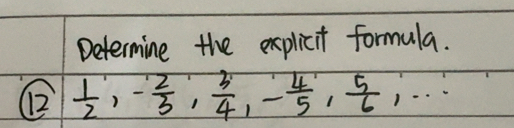 Determine the explicit formula.
⑫ 1/2, -2/3, 3/4, -4/5, 5/6, ...